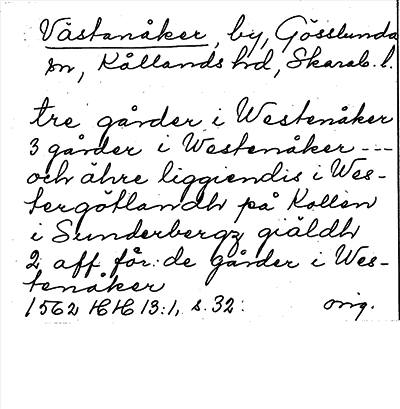 Västanåker, by, Gösslunda
sn, Kållands hd, Skarab. l.
tre gårder i Westenåker
3 gårder i Westenåker ---
och ähre liggiendis i Wes-
tergötlandh på Kollen
i Sunderbergz giäldh
2 aff för:de gårder i Wes-
tenåker
1562 HH 13:1, s. 32.
orig.